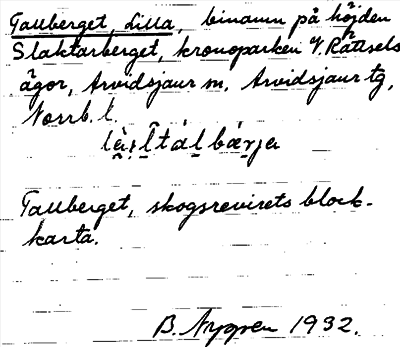 Tallberget, Lilla, binamn på höjden
Slaktarberget, kronoparken V. Rättsels
ägor, Arvidsjaur sn, Arvidsjaur tg,
Norrb. l.
Tallberget, skogsrevirets block-
karta.
B. Nygren 1932.